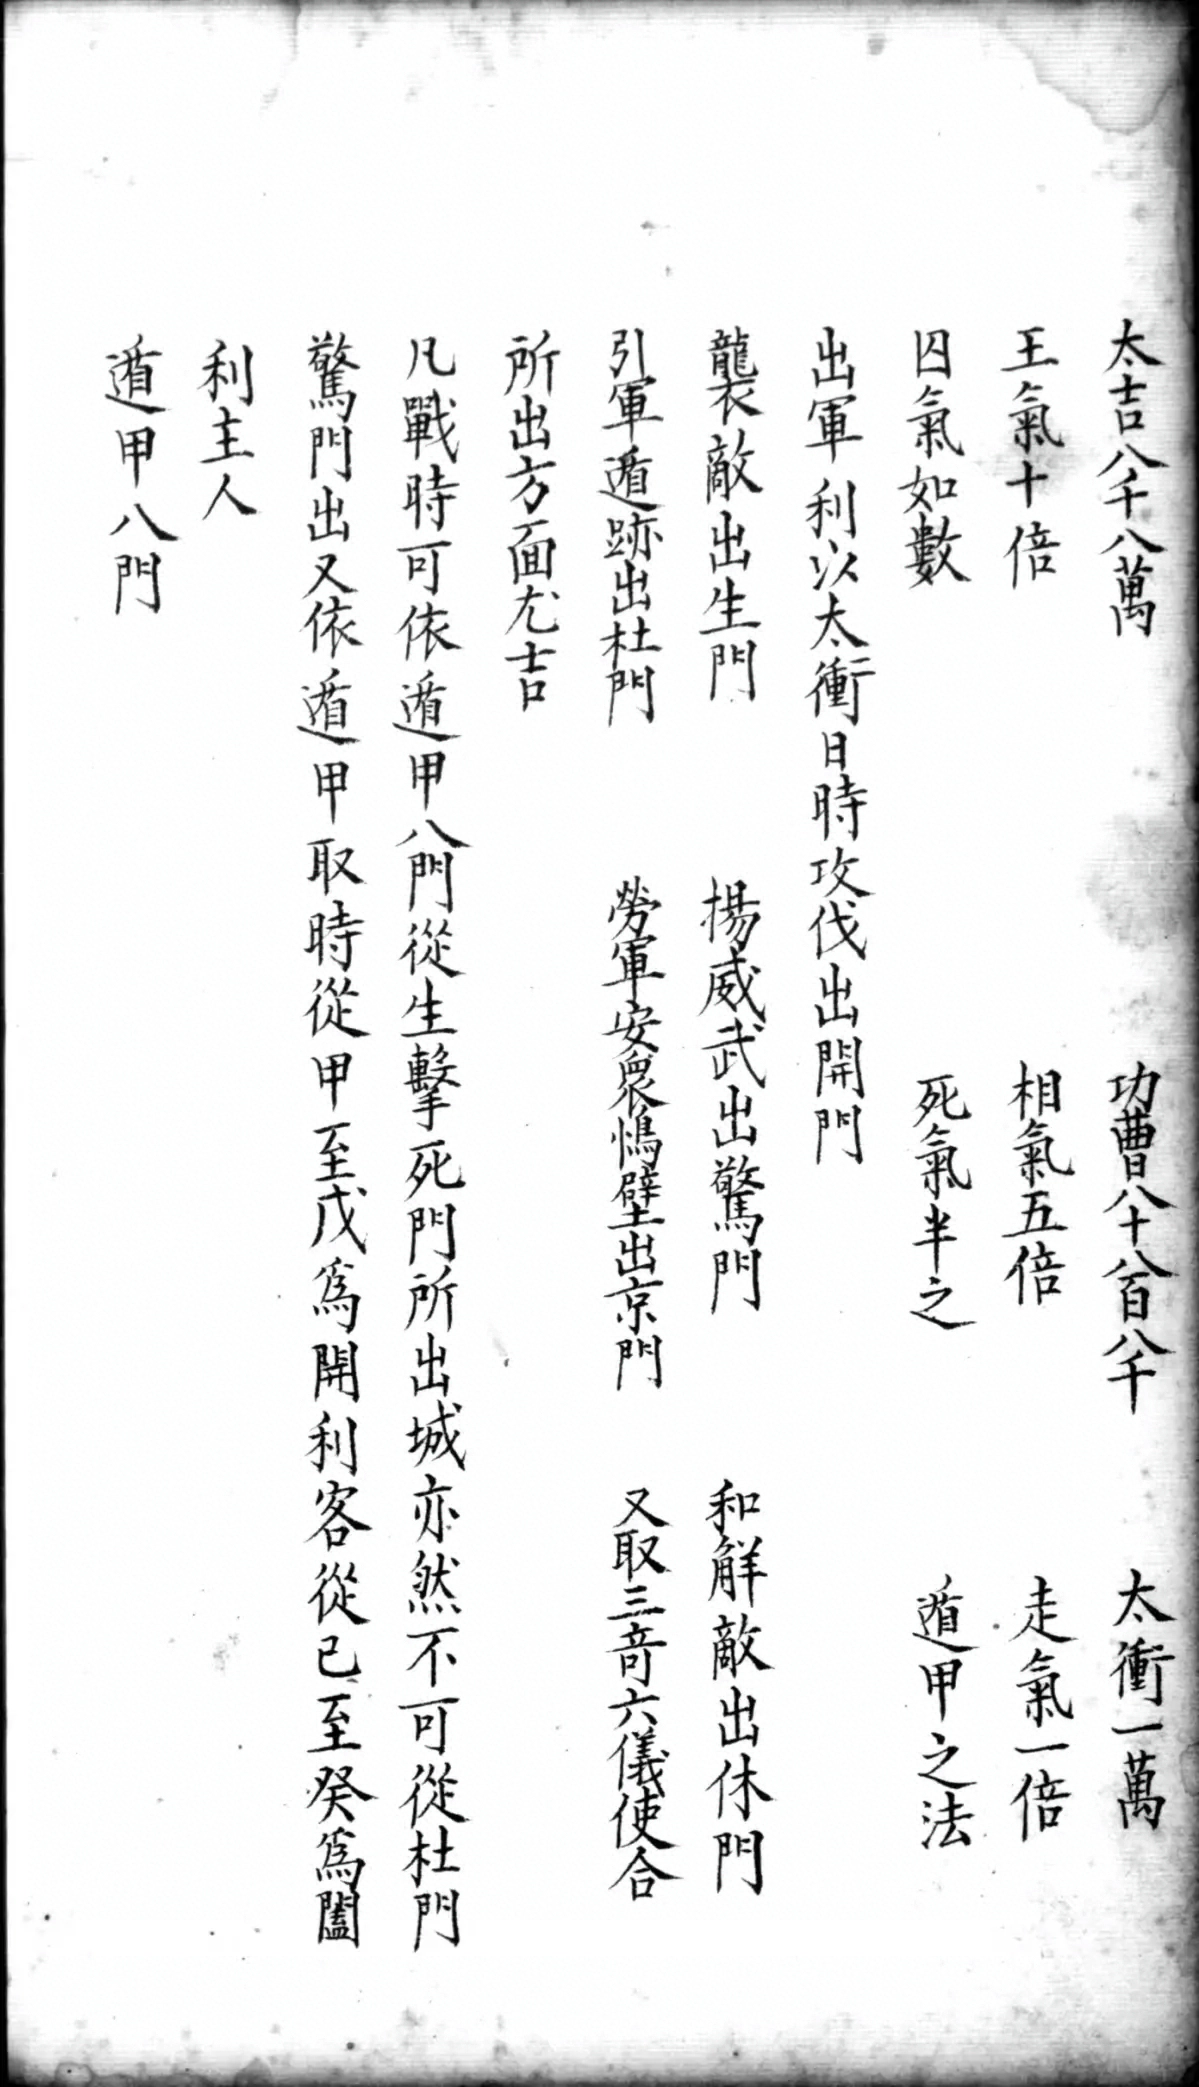 太吉八千八萬　功曹八十八百八千　太衝一萬
王氣十倍　相氣五倍　走氣一倍
囚氣如數　死氣半之　遁甲之法
出軍利以太衝日時攻伐出開門
襲敵出生門　揚威武出驚門　和觧敵出休門
引軍遁跡出杜門　勞軍安衆隖壁出京門　又取三竒六儀使合
所出方面尤吉
凡戰時可依遁甲八門從生擊死門所出城亦然不可從杜門
驚門出又依遁甲取時從甲至戊爲開利客從已至癸爲闔
利主人
遁甲八門